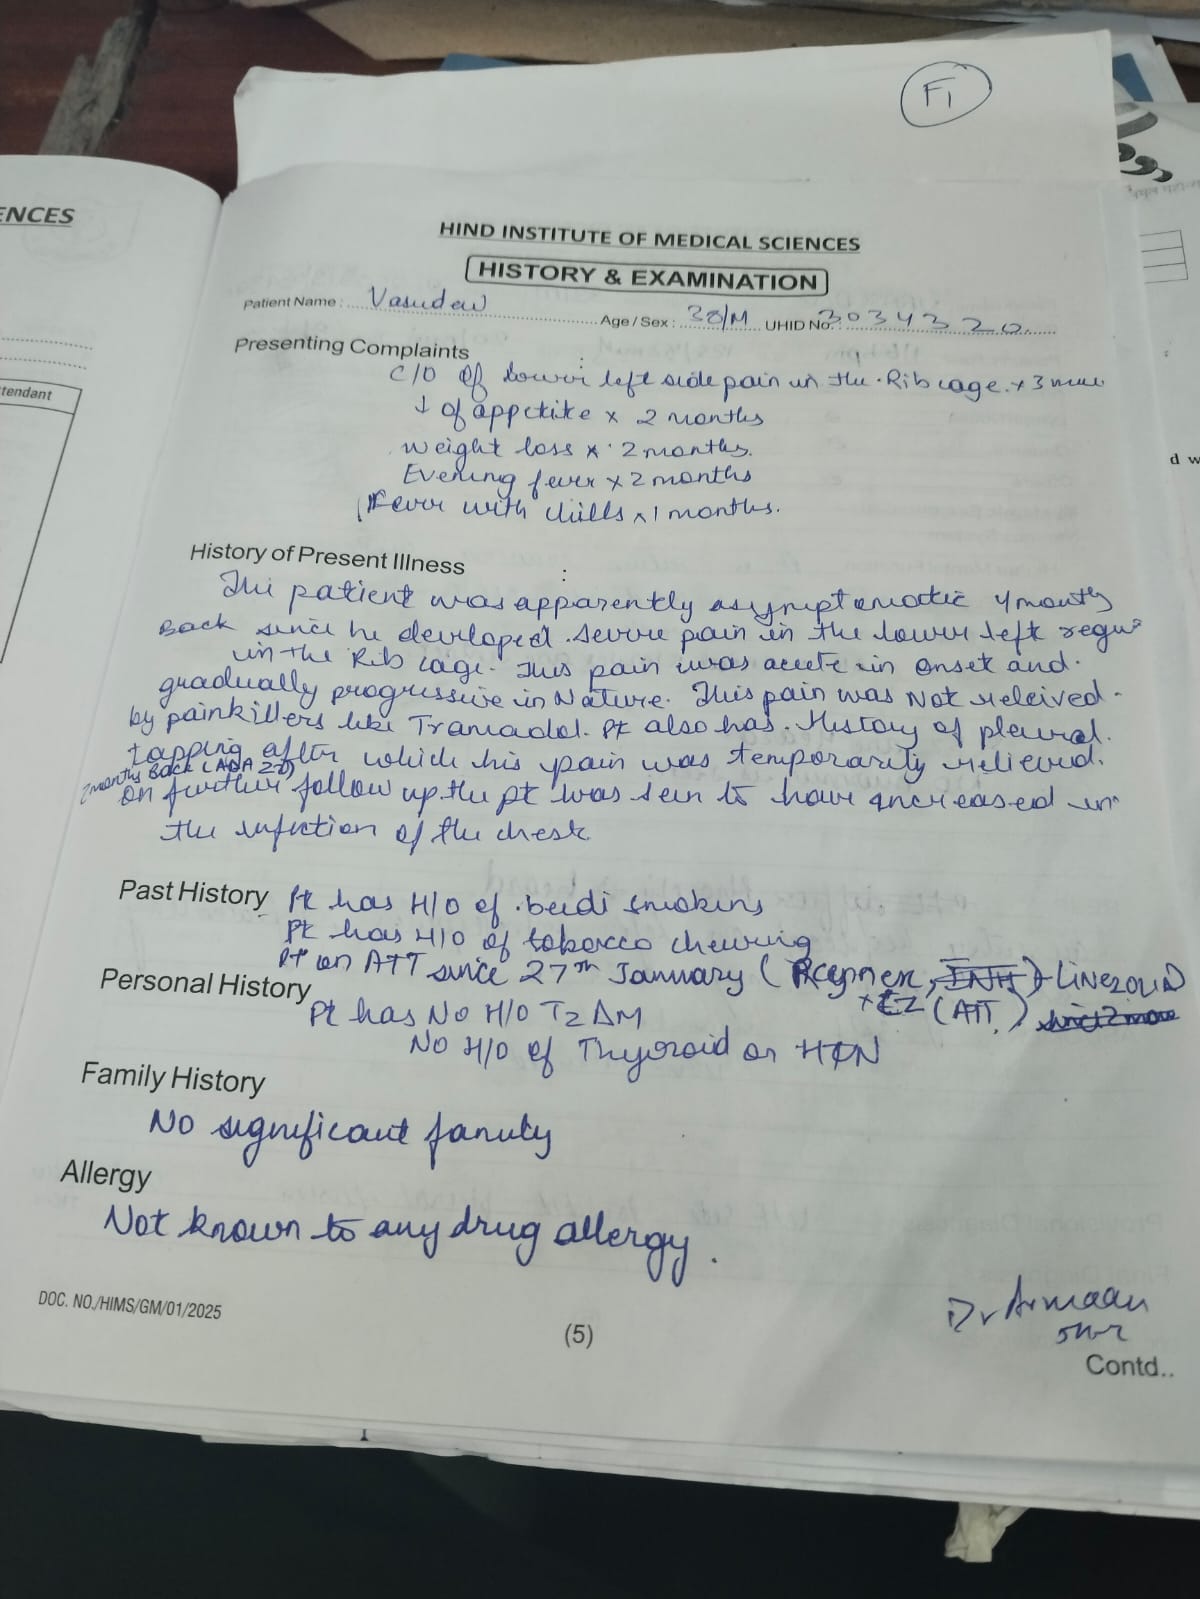 F1
ENCES
HIND INSTITUTE OF MEDICAL SCIENCES
HISTORY & EXAMINATION
Patient Name : Vasudew Age / Sex : 38/M UHID No. 3034320
Presenting Complaints :
tendant
C/O of lower left side pain in the Rib cage x 3
↓ of appetite x 2 months
weight loss x 2 months.
d w
Evening fever x 2 months
Fever with chills x 1 months.
History of Present Illness :
The patient was apparently asymptomatic 4 months
Back since he developed severe pain in the lower left
in the Rib cage. This pain was acute in onset and
gradually progressive in Nature. This pain was Not releived
by painkillers like Tramadol. Pt also has History of pleural
tapping after which his pain was temporarity relieved.
2 months Back (ADA 20)
on further follow up the pt was seen to have increased in
the infection of the chest
Past History Pt has H/O of beedi smoking
Pt has H/O of tobacco chewing
Pt on ATT since 27th January ( INH) + LINEZOLID
+ EZ (ATT)
Personal History
Pt has No H/O T2 DM
No H/O of Thyoroid or HTN
Family History
No significant family
Allergy
Not known to any drug allergy.
DOC. NO./HIMS/GM/01/2025
(5)
Dr Armaan
Contd..